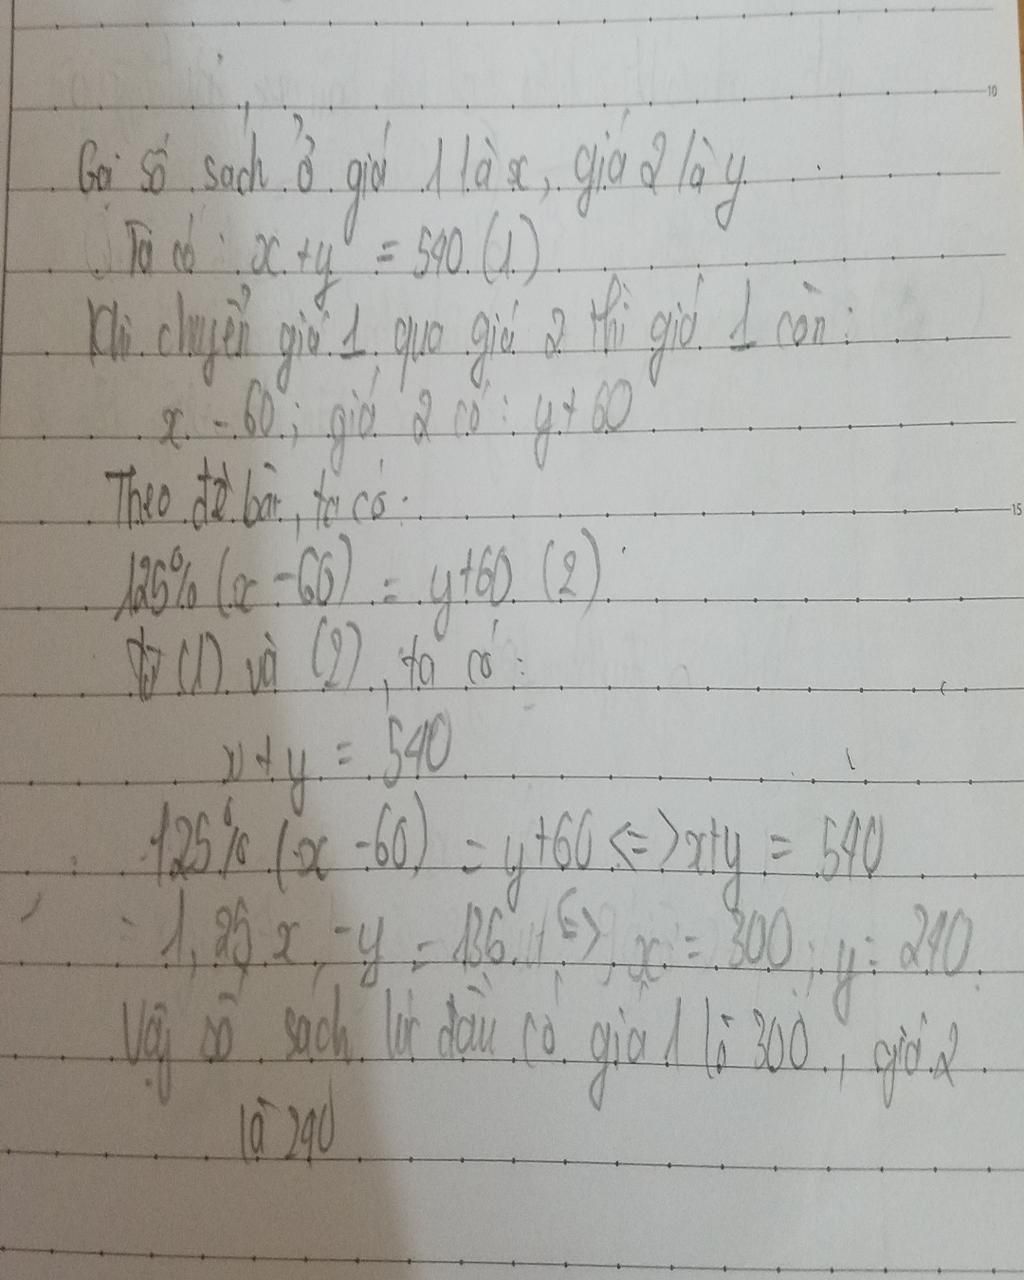 10
Gọi số sách ở giá 1 là x, giá 2 là y
Ta có : x + y = 540 (1)
Khi chuyển giá 1 qua giá 2 thì giá 1 còn :
x - 60 ; giá 2 có : y + 60
Theo đề bài, ta có :
15
125% (x - 60) = y + 60 (2)
từ (1) và (2), ta có :
x + y = 540
125% (x - 60) = y + 60 <=> x + y = 540
1,25 x - y = 135 <=> x = 300 ; y = 240
Vậy số sách lúc đầu có giá 1 là 300, giá 2
là 240